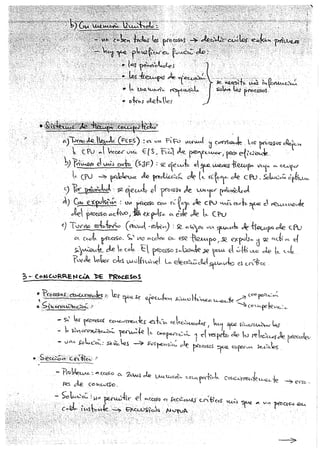 b) Con memoria limitada:
- no caben todos los procesos → decidir cuáles entran primero
- hay que planificar en función de:
• las prioridades
• los tiempos de ejecución
se necesita más información
• la memoria requerida
sobre los procesos
• otros detalles
• Sistemas de tiempo compartido
a) Turno de llegada (FCFS): es un FIFO normal y corriente. Los procesos dejan
la CPU al hacer una E/S. Fácil de programar, poco eficiente
b) Primero el más corto (SJF): se ejecuta el que menos tiempo vaya a ocupar
la CPU → problema de predicción de la ráfaga de CPU. Solución óptima
c) Por prioridad: se ejecuta el proceso de mayor prioridad
d) Con expulsión: un proceso con ráfaga de CPU más corta que el
del proceso activo, expulsa a éste de la CPU
e) Turno rotatorio (round-robin): se asigna un quanto de tiempo de CPU
a cada proceso. Si no acaba en ese tiempo, se expulsa y se activa el
siguiente de la cola. El proceso saliente se pone el último de la cola.
Puede haber colas multinivel. La elección del quanto es crítica
3- CONCURRENCIA DE PROCESOS
• Procesos concurrentes: los que se ejecutan simultáneamente → cooperación
→ competencia
• Sincronización:
- si los procesos concurrentes están relacionados, hay que sincronizarlos
- la sincronización permite la cooperación y el respeto de los procesos
- una solución: señales → suspensión de procesos que esperan señales
• Sección crítica:
- Problema: acceso a zonas de memoria compartida concurrentemente → erro-
res de concurso.
- Solución: no permitir el acceso a secciones críticas más que a un proceso en
cada instante → EXCLUSIÓN MUTUA